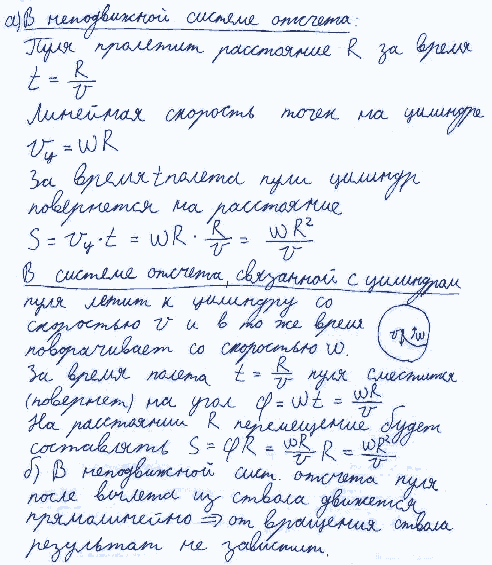 а) В неподвижной системе отсчета:
Пуля пролетит расстояние R за время
t = R/v
Линейная скорость точек на цилиндре
v_ц = ωR
За время t полета пули цилиндр
повернется на расстояние
S = v_ц · t = ωR · R/v = ωR²/v
В системе отсчета, связанной с цилиндром
пуля летит к цилиндру со
скоростью v и в то же время
поворачивает со скоростью ω.
За время полета t = R/v пуля сместится
(повернет) на угол φ = ωt = ωR/v
На расстоянии R перемещение будет
составлять S = φR = ωR/v R = ωR²/v
б) В неподвижной сист. отсчета пуля
после вылета из ствола движется
прямолинейно ⇒ от вращения ствола
результат не зависит.